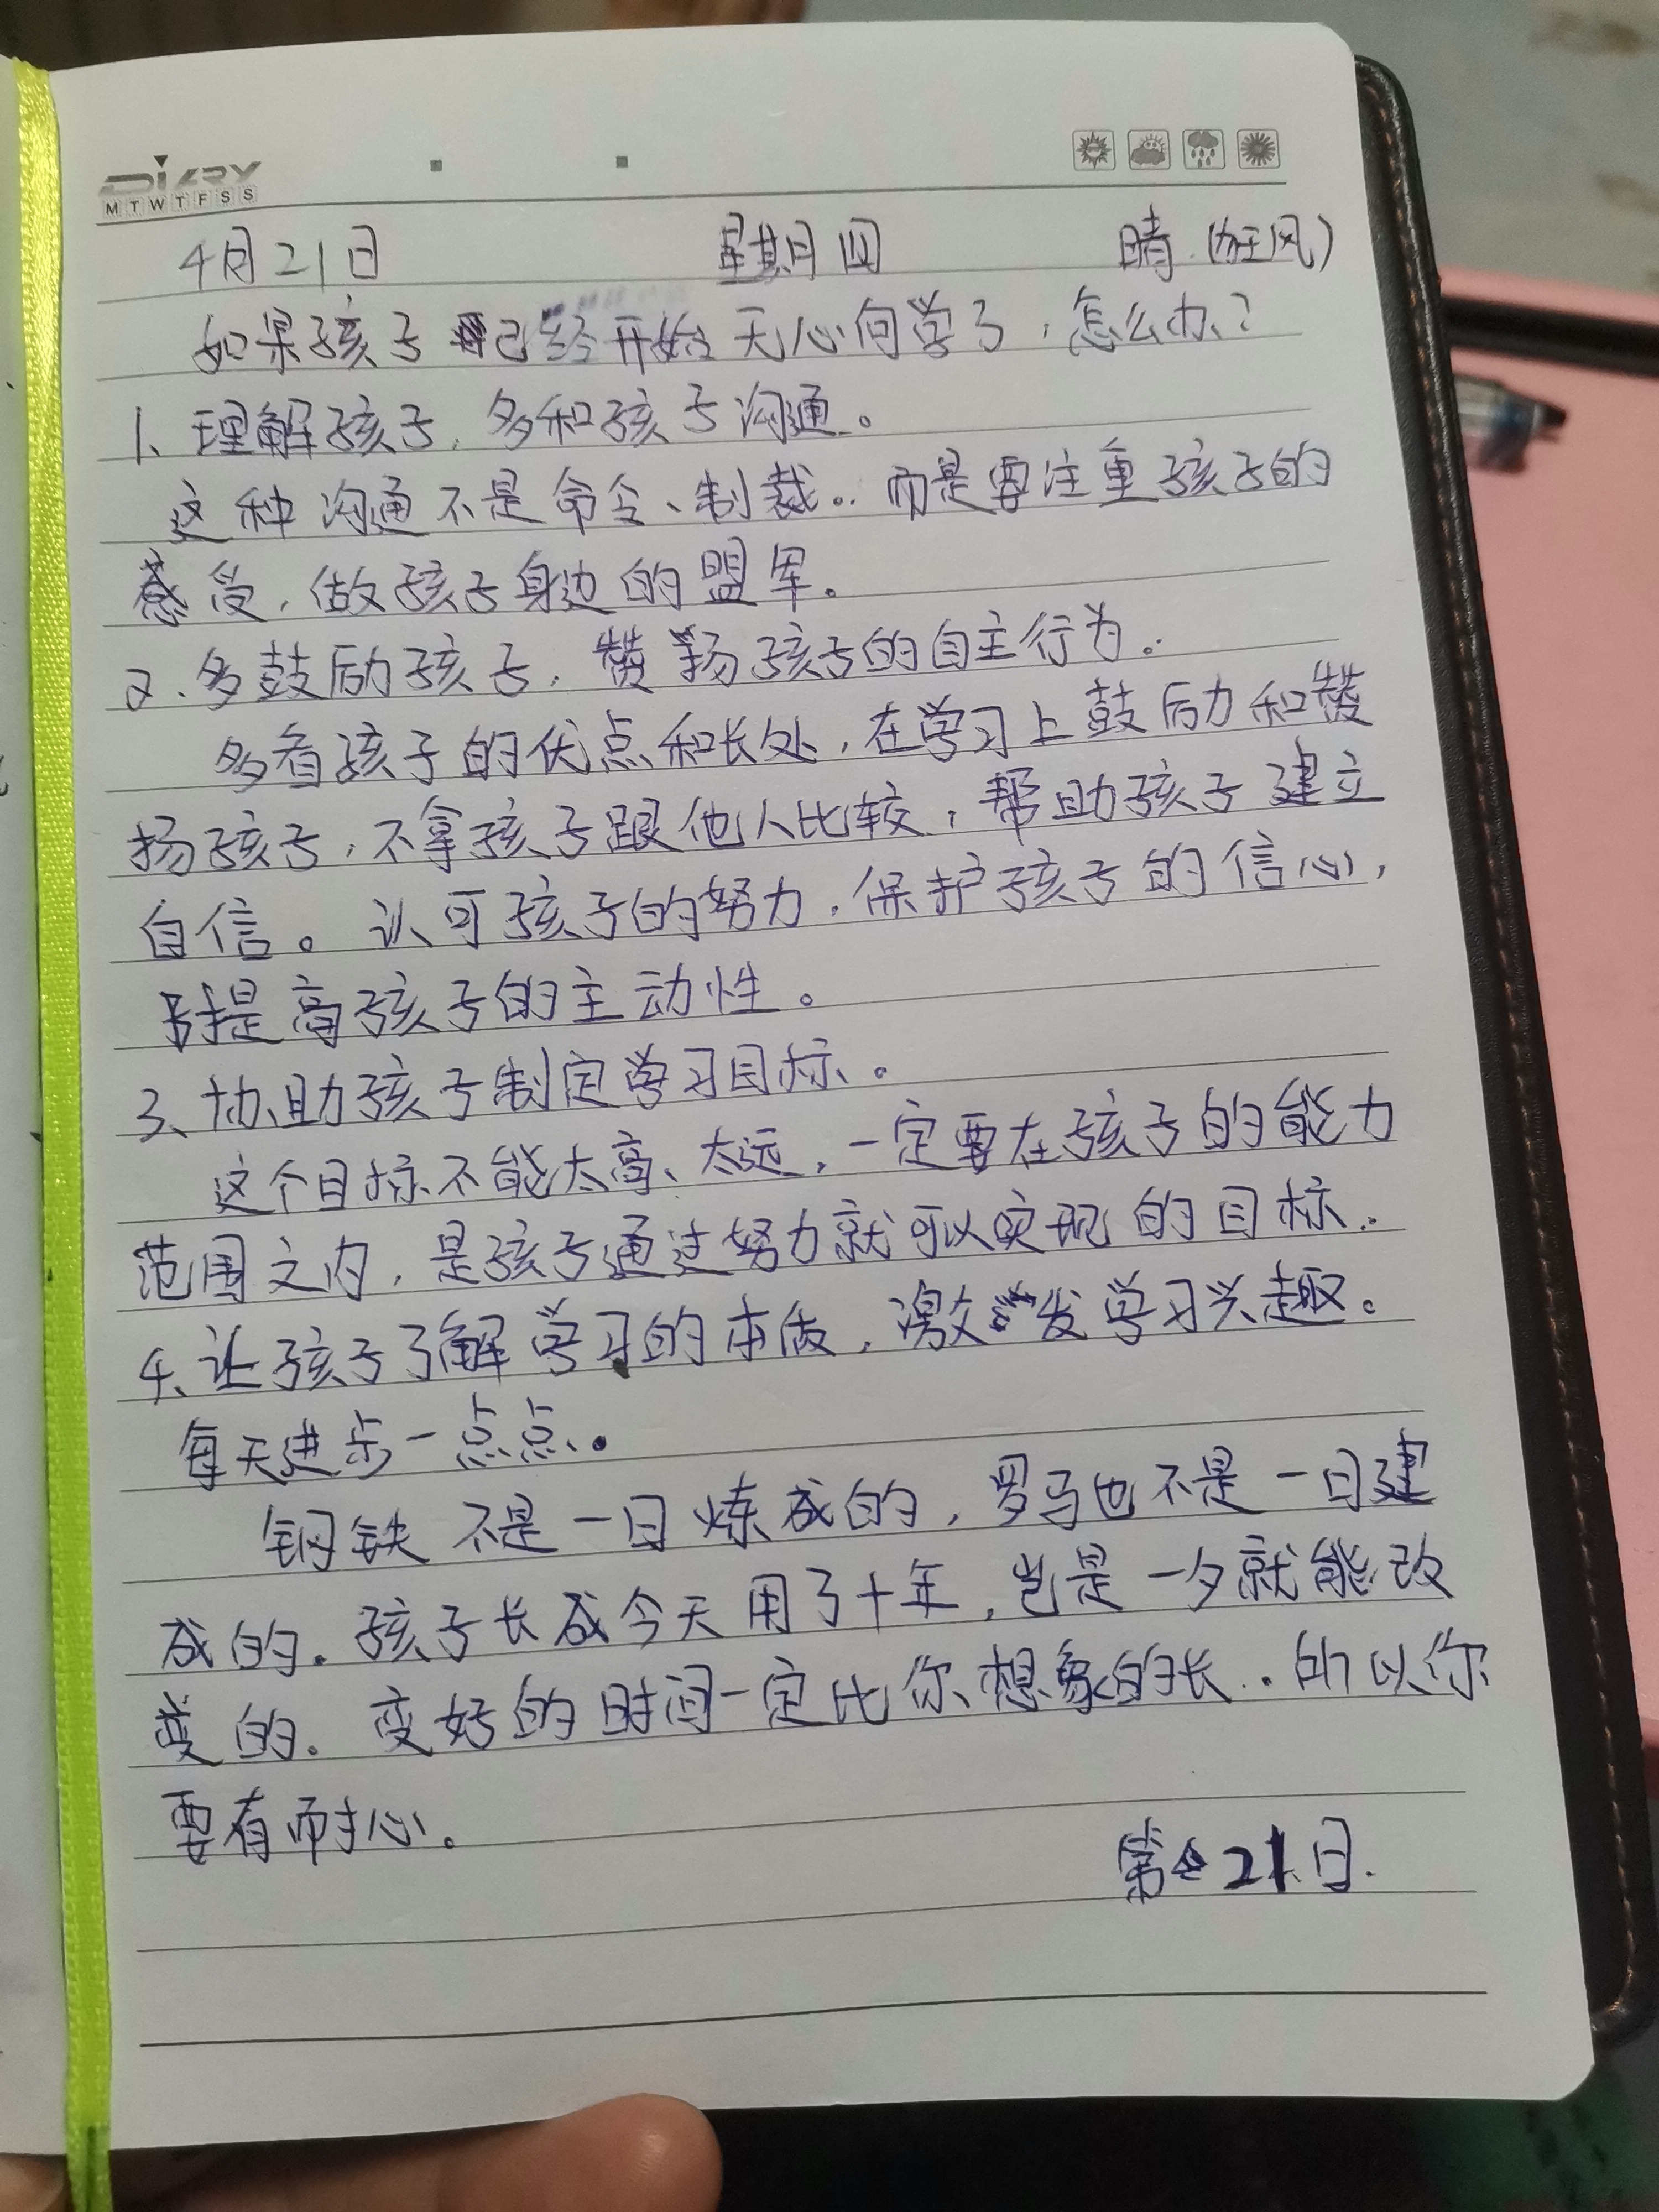 DIARY
M T W T F S S
4月21日 星期四 晴(狂风)
如果孩子已经开始无心向学了,怎么办?
1、理解孩子,多和孩子沟通。
这种沟通不是命令、制裁。而是要注重孩子的
感受,做孩子身边的盟军。
2、多鼓励孩子,赞扬孩子的自主行为.
多看孩子的优点和长处,在学习上鼓励和赞
扬孩子,不拿孩子跟他人比较,帮助孩子建立
自信。认可孩子的努力,保护孩子的信心,
提高孩子的主动性。
3、协助孩子制定学习目标。
这个目标不能太高、太远,一定要在孩子的能力
范围之内,是孩子通过努力就可以实现的目标.
4、让孩子了解学习的本质,激发学习兴趣。
每天进步一点点.
钢铁不是一日炼成的,罗马也不是一日建
成的.孩子长成今天用了十年,岂是一夕就能改
变的.变好的时间一定比你想象的长.所以你
要有耐心.
第21日.